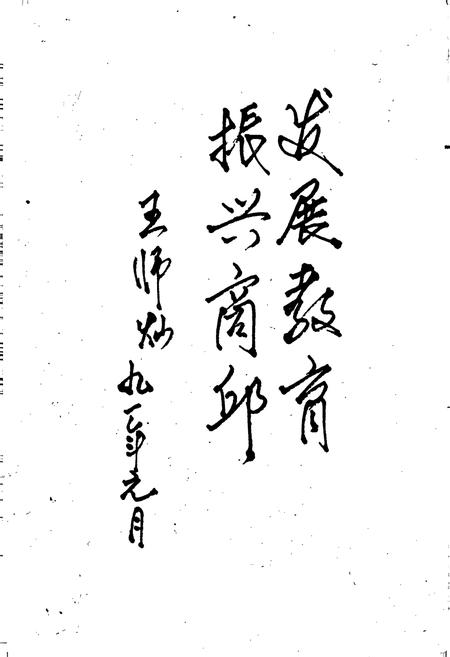 发展教育
振兴商邱
王师灿
九一年元月